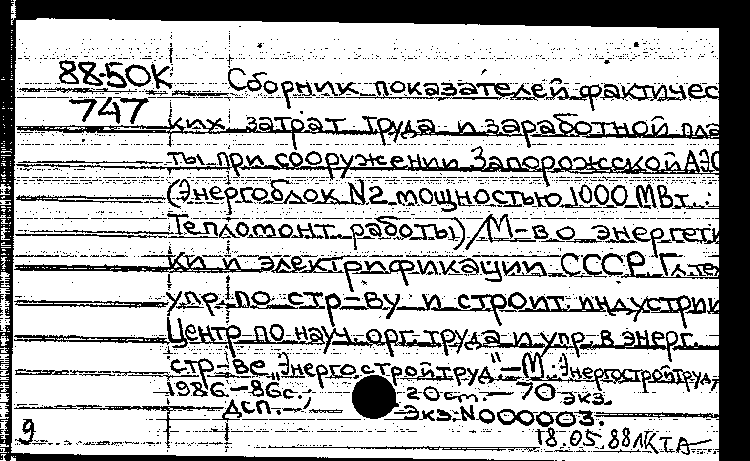 88-50К Сборник показателей фактичес
747 ких затрат труда и заработной пла
ты при сооружении Запорожсской АЭС
(Энергоблок N2 мощностью 1000 МВт. :
Тепломонт. работы) / М-во энергети
ки и электрификации СССР. Гл. тех
упр. по стр-ву и строит. индустрии
Центр по науч. орг. труда и упр. в энерг.
стр-ве "Энергостройтруд".-М.: Энергостройтруд,
1986.-86с.; 20 см.- 70 экз.
ДСП.-; Экз: N000003.
9 18.05.88